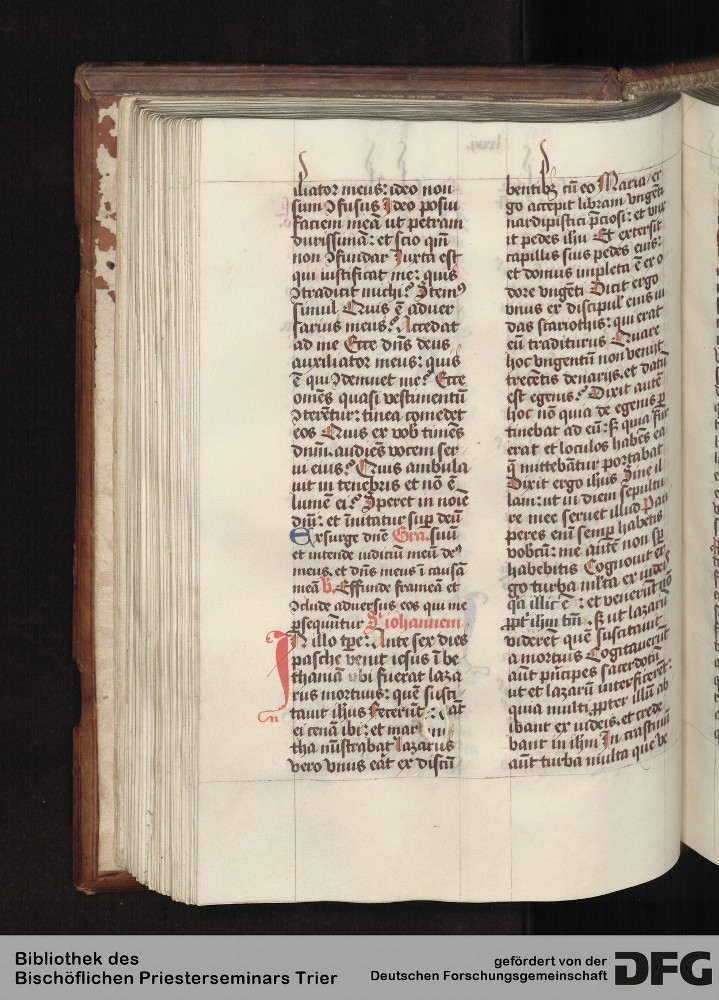 iliator meus: ideo non
sum ↄfusus Ideo posui
faciem meā ut petram
durissimā: et scio qm̄
non ↄfundar Iuxta est
qui iustificat me: quis
ↄtradicit michi? Stemꝰ
simul Quis ē aduer
sarius meus? Accedat
ad me Ecce dn̄s deus
auxiliator meus: quis
ē qui ↄdemnet me? Ecce
omēs quasi vestimentū
ↄterētur: tinea comedet
eos Quis ex vob timēs
dnm̄. audiēs vocem ser
ui eius? Quis ambula
uit in tenebris et nō ē
lumē ei? Speret in noīe
dnī: et innitatur sup deū
Exsurge dn̄e Gra. suū
et intende iudiciū meū deꝰ
meus. et dn̄s meus ī causā
meā V. Effunde frameā et
ↄclude aduersus eos qui me
ꝑsequūtur S' iohannem
IN illo tꝑe: Ante sex dies
pasche venit iesus ī be
thaniā vbi fuerat laza
rus mortuus: quē susci
tauit ihus fecerūt:
ei cenā ibi: et mar
tha ministrabat lazarus
vero vnus eāt ex discū
bentibꝫ cū eo Maria er
go accepit libram vngēti
nardipistici p̄ciosi: et vnx
it pedes ihu Et extersit
capillis suis pedes eius:
et domus impleta ē ex o
dore vngēti Dicit ergo
vnus ex discipul' eius iu
das scariothis: qui erat
eū traditurus Quare
hoc vngentū non veniit
trecētis denarijs. et datū
est egenis? Dixit autē
hoc nō quia de egenis ꝑ
tinebat ad eū: sꝫ quia fur
erat et loculos habēs ea
q̄ mittebātur portabat
Dixit ergo ihus Sine il
lam: ut in diem sepultu
re mee seruet illud Pau
peres eni semꝑ habetis
vobcū: me autē non sꝑ
habebitis Cognouit er
go turba mlta ex iudeis
qa illic ē: et venerūt nō
ꝓpt' ihm tm̄. sꝫ ut lazarū
viderēt quē suscitauit
a mortuis Cogitauerūt
aūt pncipes sacerdotū
ut et lazarū interficerēt:
quia multi ꝓpter illū ab
ibant ex iudeis. et crede
bant in ihm In crastinū
aūt turba multa que ve
Bibliothek des
Bischöflichen Priesterseminars Trier
gefördert von der
Deutschen Forschungsgemeinschaft DFG